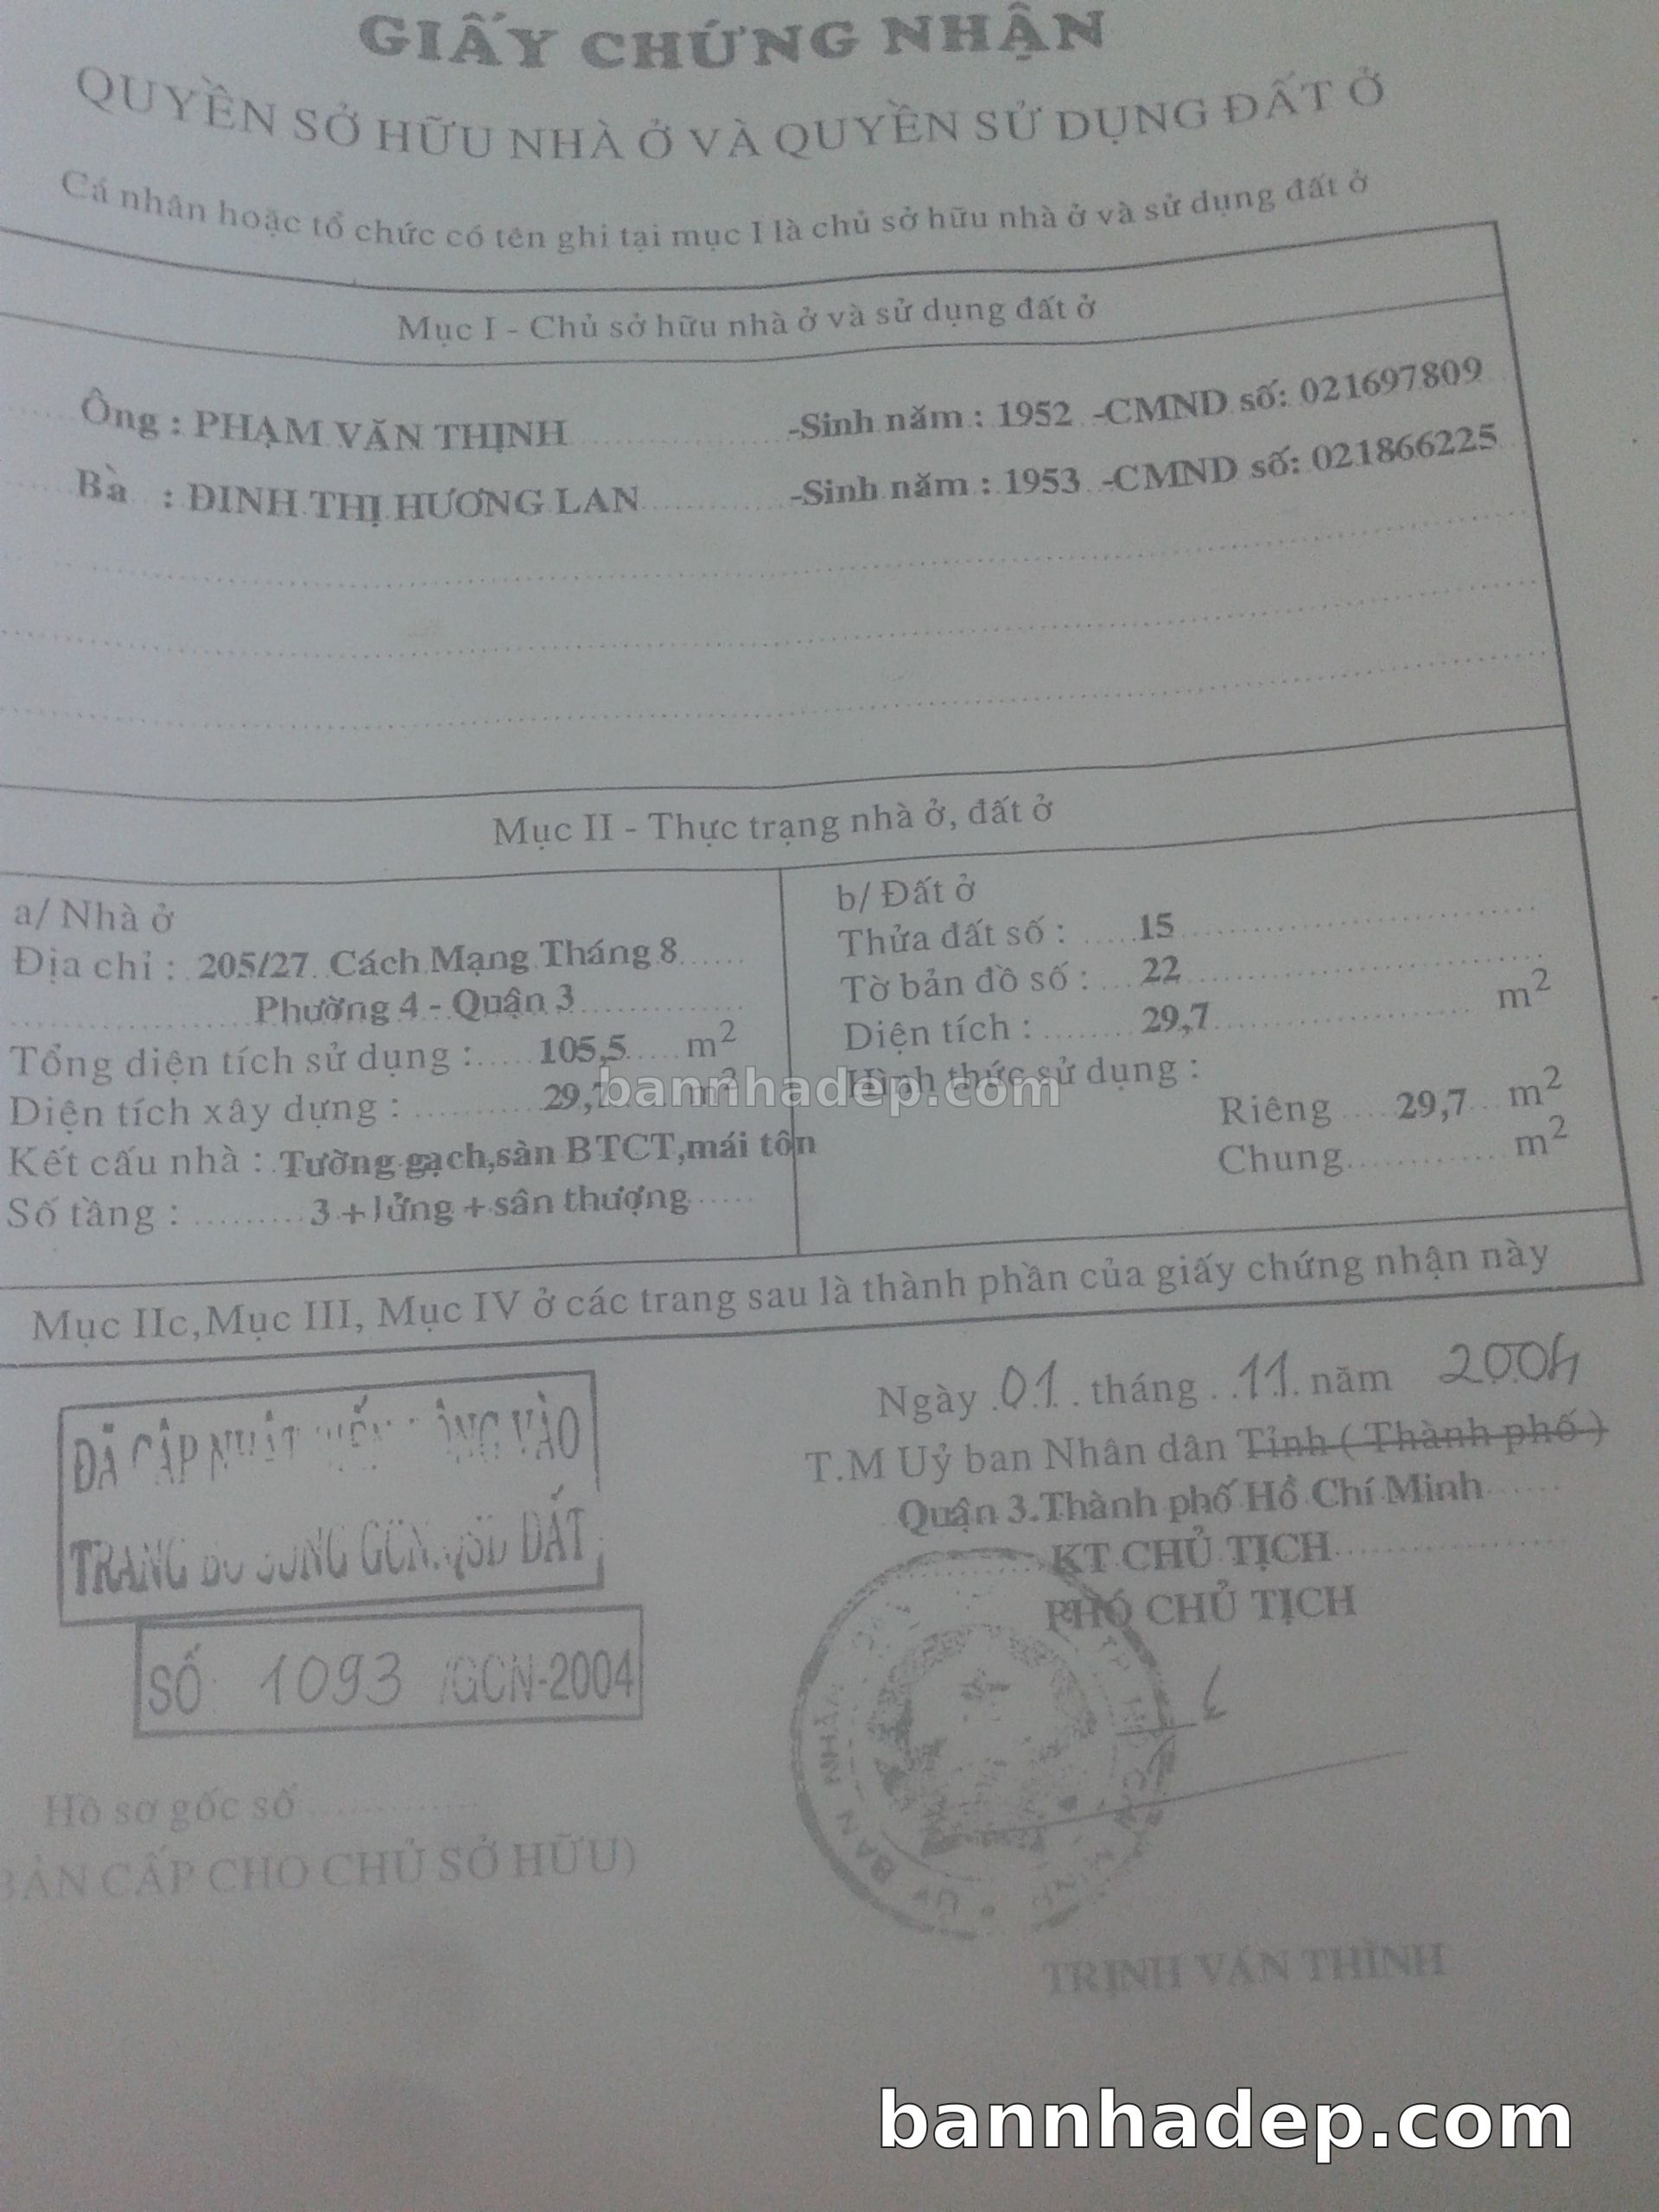 GIẤY CHỨNG NHẬN
QUYỀN SỞ HỮU NHÀ Ở VÀ QUYỀN SỬ DỤNG ĐẤT Ở
Cá nhân hoặc tổ chức có tên ghi tại mục I là chủ sở hữu nhà ở và sử dụng đất ở
Mục I - Chủ sở hữu nhà ở và sử dụng đất ở
Ông : PHẠM VĂN THỊNH -Sinh năm : 1952 -CMND số: 021697809
Bà : ĐINH THỊ HƯƠNG LAN -Sinh năm : 1953 -CMND số: 021866225
Mục II - Thực trạng nhà ở, đất ở
a/ Nhà ở
Địa chỉ : 205/27 Cách Mạng Tháng 8
Phường 4 - Quận 3
Tổng diện tích sử dụng : 105,5 m2
Diện tích xây dựng : 29,7 m2
Kết cấu nhà : Tường gạch,sàn BTCT,mái tôn
Số tầng : 3 + lửng + sân thượng
b/ Đất ở
Thửa đất số : 15
Tờ bản đồ số : 22
Diện tích : 29,7 m2
Hình thức sử dụng :
Riêng 29,7 m2
Chung m2
bannhadep.com
Mục IIc, Mục III, Mục IV ở các trang sau là thành phần của giấy chứng nhận này
Ngày 01 tháng 11 năm 2004
T.M Uỷ ban Nhân dân Tỉnh ( Thành phố )
Quận 3.Thành phố Hồ Chí Minh
KT CHỦ TỊCH
PHÓ CHỦ TỊCH
ĐÃ CẬP NHẬT BIẾN ĐỘNG VÀO
TRANG BỔ SUNG GCN.QSD ĐẤT
SỐ: 1093 /GCN-2004
Hồ sơ gốc số
BẢN CẤP CHO CHỦ SỞ HỮU)
ỦY BAN NHÂN
TRỊNH VĂN THÌNH
bannhadep.com